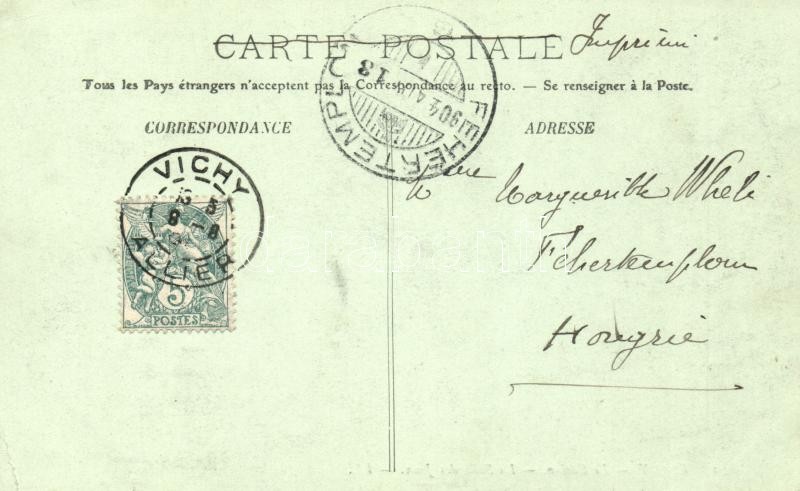 CARTE POSTALE
Imprimé
Tous les Pays étrangers n'acceptent pas la Correspondance au recto. — Se renseigner à la Poste.
CORRESPONDANCE
ADRESSE
FEHERTEMPLOM
904
13
VICHY
ALLIER
5
POSTES
Marguerithe
Fehertemplom
Hongrie